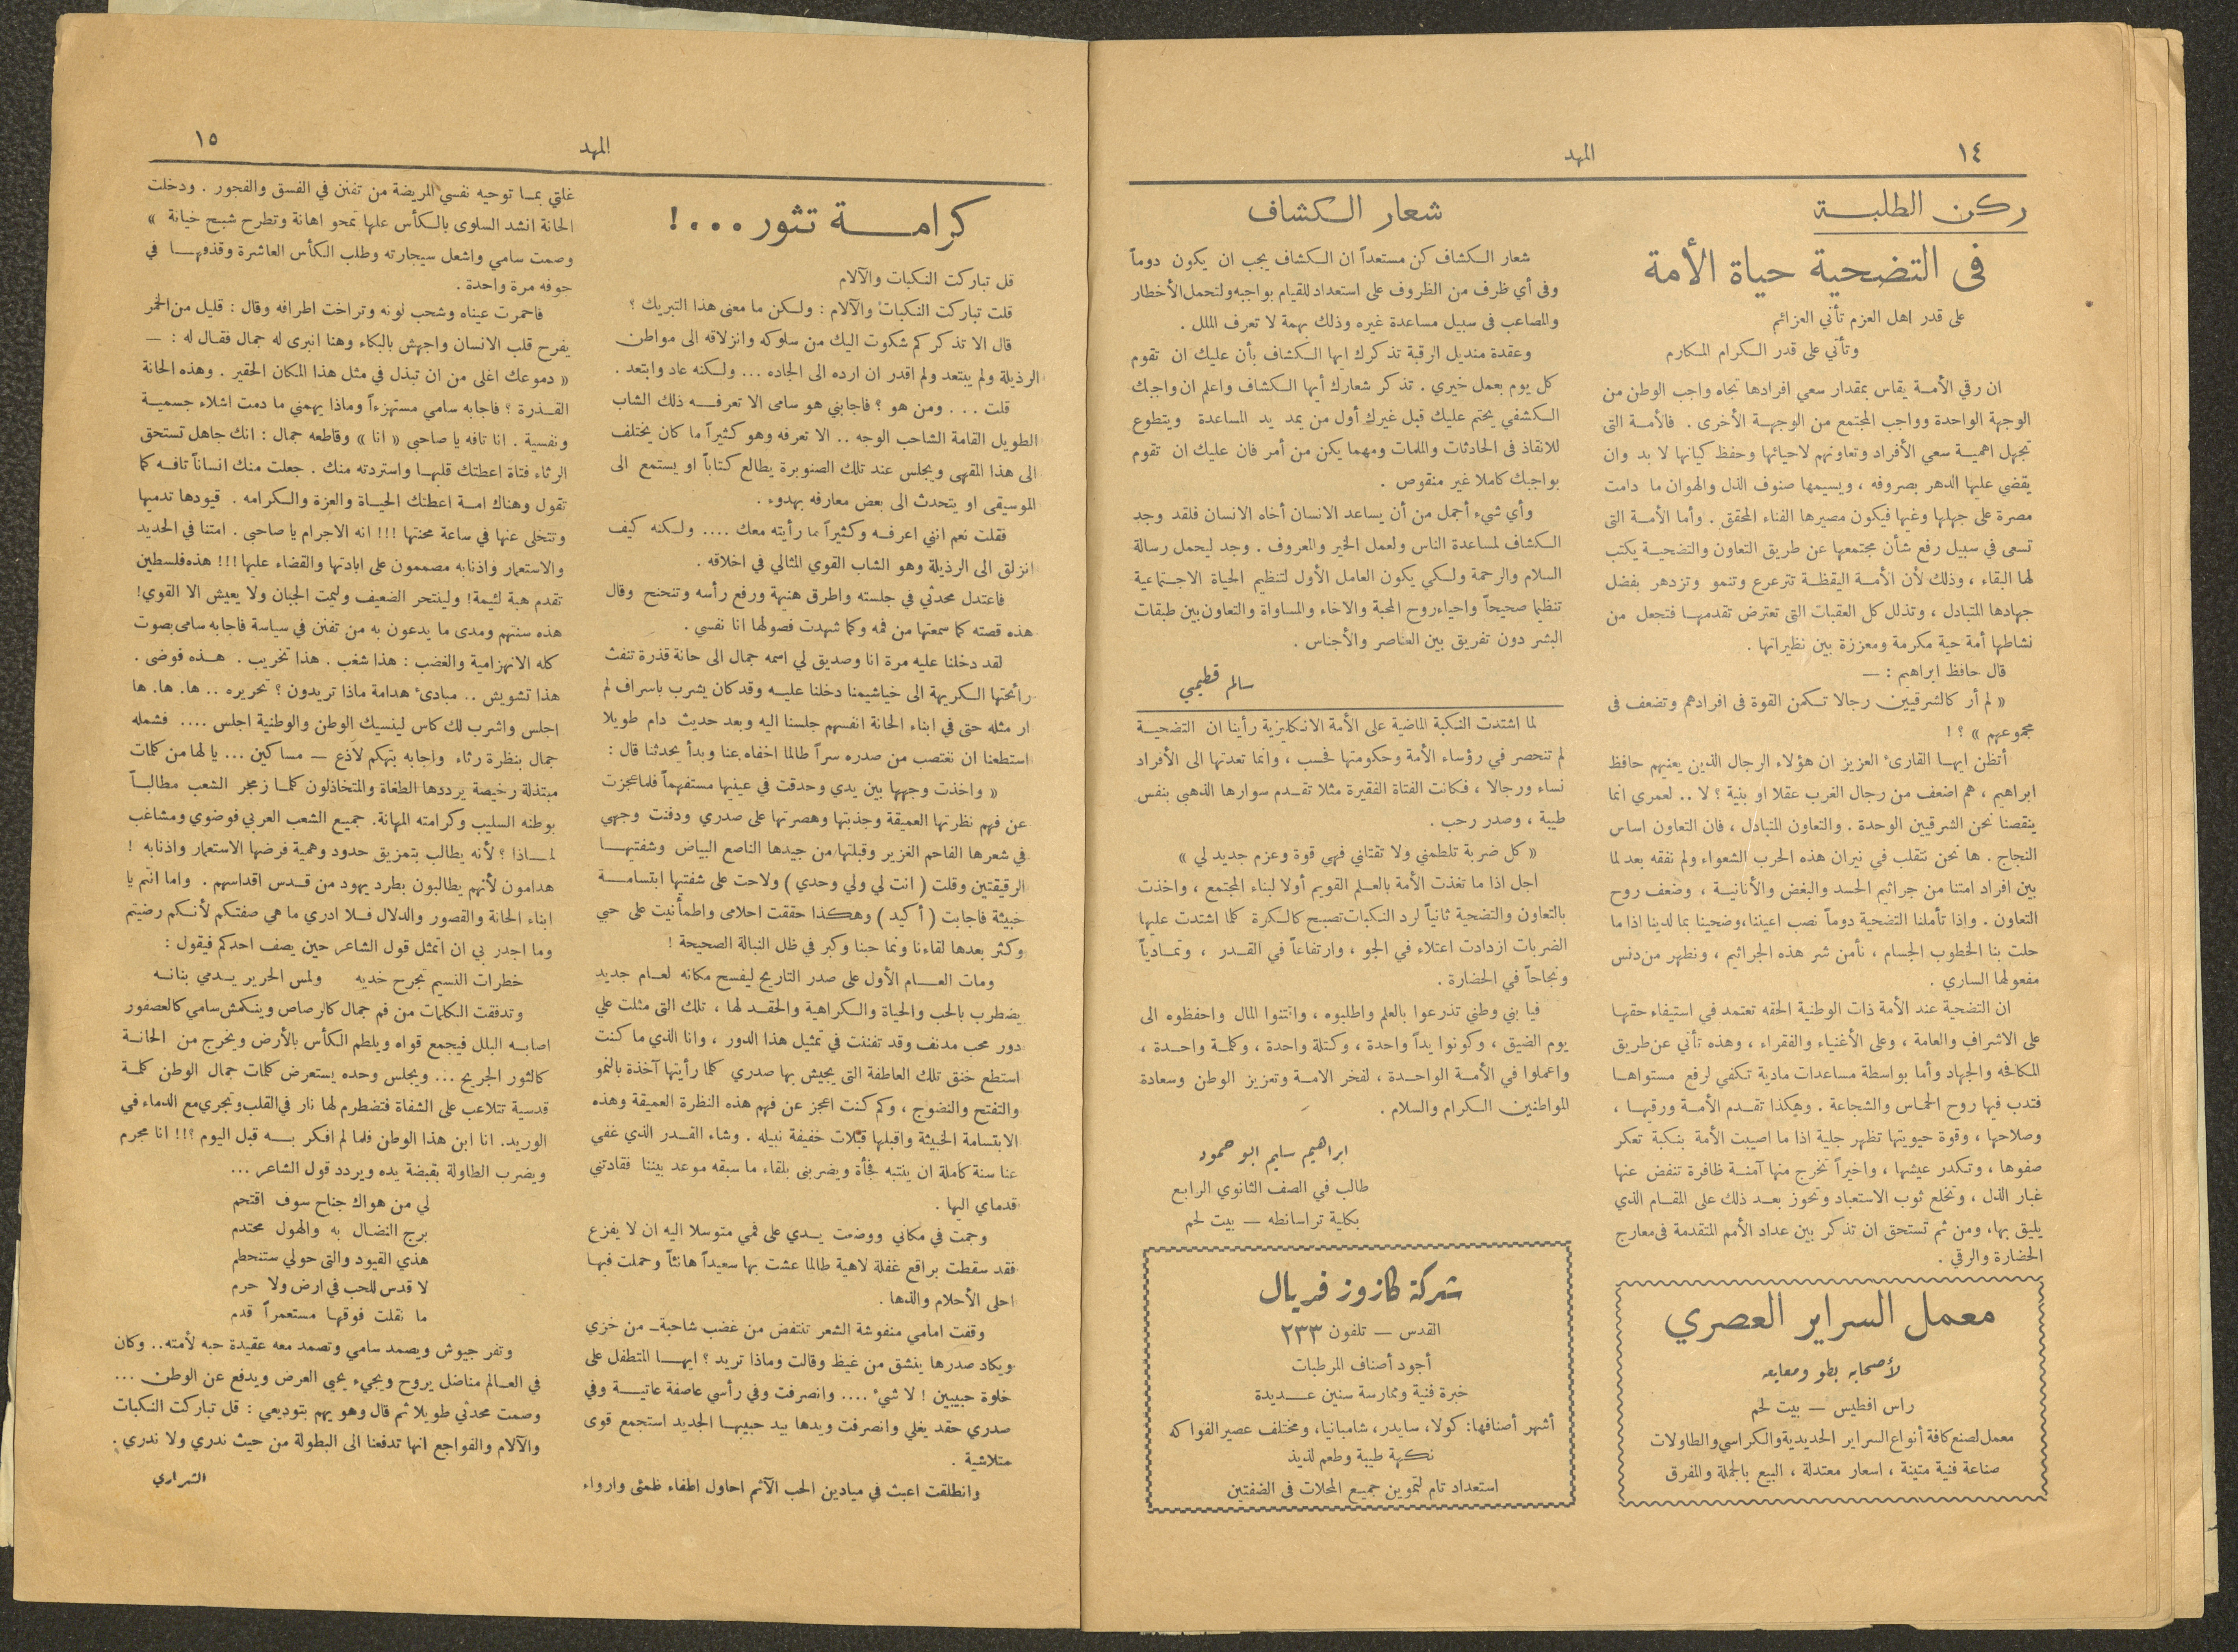 ١٤
المهد
ركن الطلبة
في التضحية حياة الأمة
على قدر اهل العزم تأتي العزائم
وتأتي على قدر الكرام المكارم
ان رقي الأمة يقاس بمقدار سعي افرادها تجاه واجب الوطن من
الوجهة الواحدة وواجب المجتمع من الوجهة الأخرى . فالأمة التى
تجهل اهمية سعي الأفراد وتعاونهم لاحيائها وحفظ كيانها لا بد وان
يقضي عليها الدهر بصروفه ، ويسيمها صنوف الذل والهوان ما دامت
مصرة على جهلها وغيها فيكون مصيرها الفناء المحقق . وأما الأمة التى
تسعى في سبيل رفع شأن مجتمعها عن طريق التعاون والتضحية يكتب
لها البقاء ، وذلك لأن الأمة اليقظة تترعرع وتنمو وتزدهر بفضل
جهادها المتبادل ، وتذلل كل العقبات التى تعترض تقدمها فتجعل من
نشاطها أمة حية مكرمة ومعززة بين نظيراتها .
قال حافظ ابراهيم : —
« لم أر كالشرقيين رجالا تكمن القوة فى افرادهم وتضعف فى
مجموعهم » ؟ !
أتظن ايها القارئ العزيز ان هؤلاء الرجال الذين يعنيهم حافظ
ابراهيم ، هم اضعف من رجال الغرب عقلا او بنية ؟ لا .. لعمري انما
ينقصنا نحن الشرقيين الوحدة . والتعاون المتبادل ، فان التعاون اساس
النجاح . ها نحن نتقلب في نيران هذه الحرب الشعواء ولم نفقه بعد لما
بين افراد امتنا من جراثيم الحسد والبغض والأنانية ، وضعف روح
التعاون . وإذا تأملنا التضحية دوماً نصب اعيننا،وضحينا بما لدينا اذا ما
حلت بنا الخطوب الجسام ، نأمن شر هذه الجراثيم ، ونطهر من دنس
مفعولها الساري .
ان التضحية عند الأمة ذات الوطنية الحقه تعتمد في استيفاء حقها
على الاشراف والعامة ، وعلى الأغنياء والفقراء ، وهذه تأتي عن طريق
المكافحه والجهاد وأما بواسطة مساعدات مادية تكفي لرفع مستواها
فتدب فيها روح الحماس والشجاعة . وهكذا تقدم الأمة ورقيها ،
وصلاحها ، وقوة حيويتها تظهر جلية اذا ما اصيبت الأمة بنكبة تعكر
صفوها ، وتكدر عيشها ، واخيراً تخرج منها آمنة ظافرة تنفض عنها
غبار الذل ، وتخلع ثوب الاستعباد وتحوز بعد ذلك على المقام الذي
يليق بها، ومن ثم تستحق ان تذكر بين عداد الأمم المتقدمة فى معارج
الحضارة والرقي .
معمل السراير العصري
لأصحابه بطو ومعايعه
راس افطيس — بيت لحم
معمل لصنع كافة أنواع السراير الحديدية والكراسي والطاولات
صناعة فنية متينة ، اسعار معتدلة ، البيع بالجملة والمفرق
شعار الكشاف
شعار الكشاف كن مستعداً ان الكشاف يجب ان يكون دوماً
وفى أي ظرف من الظروف على استعداد للقيام بواجبه ولتحمل الأخطار
والمصاعب فى سبيل مساعدة غيره وذلك بهمة لا تعرف الملل .
وعقدة منديل الرقبة تذكرك ايها الكشاف بأن عليك ان تقوم
كل يوم بعمل خيري . تذكر شعارك أيها الكشاف واعلم ان واجبك
الكشفي يحتم عليك قبل غيرك أول من يمد يد المساعدة ويتطوع
للانقاذ فى الحادثات والملمات ومهما يكن من أمر فان عليك ان تقوم
بواجبك كاملا غير منقوص .
وأي شيء أجمل من أن يساعد الانسان أخاه الانسان فلقد وجد
الكشاف لمساعدة الناس ولعمل الخير والمعروف . وجد ليحمل رسالة
السلام والرحمة ولكي يكون العامل الأول لتنظيم الحياة الاجتماعية
تنظيما صحيحاً واحياء روح المحبة والاخاء والمساواة والتعاون بين طبقات
البشر دون تفريق بين العناصر والأجناس .
سالم قطيمي
لما اشتدت النكبة الماضية على الأمة الانكليزية رأينا ان التضحية
لم تنحصر في رؤساء الأمة وحكومتها فحسب ، وانما تعدتها الى الأفراد
نساء ورجالا ، فكانت الفتاة الفقيرة مثلا تقدم سوارها الذهبي بنفس
طيبة ، وصدر رحب .
« كل ضربة تلطمني ولا تقتلني فهي قوة وعزم جديد لي »
اجل اذا ما تغذت الأمة بالعلم القويم أولا لبناء المجتمع ، واخذت
بالتعاون والتضحية ثانياً لرد النكبات تصبح كالكرة كلما اشتدت عليها
الضربات ازدادت اعتلاء في الجو ، وارتفاعاً في القدر ، وتمادياً
ونجاحاً في الحضارة .
فيا بني وطني تذرعوا بالعلم واطلبوه ، وانتنوا المال واحفظوه الى
يوم الضيق ، وكونوا يداً واحدة ، وكتلة واحدة ، وكلمة واحدة ،
واعملوا في الأمة الواحدة ، لفخر الامة وتعزيز الوطن وسعادة
المواطنين الكرام والسلام .
ابراهيم سليم ابو حمود
طالب في الصف الثانوي الرابع
بكلية تراسانطه — بيت لحم
شركة كازوز فريال
القدس — تلفون ٢٣٣
أجود أصناف المرطبات
خبرة فنية وممارسة سنين عديدة
أشهر أصنافها: كولا، سايدر، شامبانيا، ومختلف عصير الفواكه
نكهة طيبة وطعم لذيذ
استعداد تام لتموين جميع المحلات فى الضفتين
المهد
١٥
كرامة تثور ...!
قل تباركت النكبات والآلام
قلت تباركت النكبات والآلام : ولكن ما معنى هذا التبريك ؟
قال الا تذكر كم شكوت اليك من سلوكه وانزلاقه الى مواطن
الرذيلة ولم يبتعد ولم اقدر ان ارده الى الجاده ... ولكنه عاد وابتعد .
قلت ... ومن هو ؟ فاجابني هو سامى الا تعرفه ذلك الشاب
الطويل القامة الشاحب الوجه .. الا تعرفه وهو كثيراً ما كان يختلف
الى هذا المقهى ويجلس عند تلك الصنوبرة يطالع كتاباً او يستمع الى
الموسيقى او يتحدث الى بعض معارفه بهدوء .
فقلت نعم انني اعرفه وكثيراً ما رأيته معك .... ولكنه كيف
انزلق الى الرذيلة وهو الشاب القوي المثالي في اخلاقه .
فاعتدل محدثي في جلسته واطرق هنيهة ورفع رأسه وتنحنح وقال
هذه قصته كما سمعتها من فمه وكما شهدت فصولها انا نفسي .
لقد دخلنا عليه مرة انا وصديق لي اسمه جمال الى حانة قذرة تنفث
رائحتها الكريهة الى خياشيمنا دخلنا عليه وقد كان يشرب باسراف لم
ار مثله حتى في ابناء الحانة انفسهم جلسنا اليه وبعد حديث دام طويلا
استطعنا ان نغتصب من صدره سراً طالما اخفاه عنا وبدأ يحدثنا قال :
« واخذت وجهها بين يدي وحدقت في عينيها مستفهماً فلما عجزت
عن فهم نظرتها العميقة وجذبتها وهصرتها على صدري ودفنت وجهي
في شعرها الفاحم الغزير وقبلتها من جيدها الناصع البياض وشفتيها
الرقيقتين وقلت ( انت لي ولي وحدي ) ولاحت على شفتيها ابتسامة
خبيثة فاجابت ( أكيد ) وهكذا حققت احلامى واطمأنيت على حبي
وكثر بعدها لقاءنا ونما حبنا وكبر في ظل النبالة الصحيحة !
ومات العام الأول على صدر التاريخ ليفسح مكانه لعام جديد
يضطرب بالحب والحياة والكراهية والحقد لها ، تلك التى مثلت علي
دور محب مدنف وقد تفننت في تمثيل هذا الدور ، وانا الذي ما كنت
استطع خنق تلك العاطفة التى يجيش بها صدري كلما رأيتها آخذة بالنمو
والتفتح والنضوج ، وكم كنت اعجز عن فهم هذه النظرة العميقة وهذه
الابتسامة الخبيثة واقبلها قبلات خفيفة نبيله . وشاء القدر الذي غفي
عنا سنة كاملة ان ينتبه فجأة ويضربنى بلقاء ما سبقه موعد بيننا فقادتني
قدماي اليها .
وجمت في مكاني ووضعت يدي على فمي متوسلا اليه ان لا يفزع
فقد سقطت براقع غفلة لاهية طالما عشت بها سعيداً هانئاً وحملت فيها
احلى الأحلام والذها .
وقفت امامي منفوشة الشعر تنتفض من غضب شاحبة من خزي
ويكاد صدرها ينشق من غيظ وقالت وماذا تريد ؟ ايها المتطفل على
خلوة حبيبين ! لا شيء .... وانصرفت وفي رأسي عاصفة عاتية وفي
صدري حقد يغلي وانصرفت ويدها بيد حبيبها الجديد استجمع قوى
متلاشية .
وانطلقت اعبث في ميادين الحب الآثم احاول اطفاء ظمئى وارواء
غلتي بما توحيه نفسي المريضة من تفنن في الفسق والفجور . ودخلت
الحانة انشد السلوى بالكأس علها تمحو اهانة وتطرح شبح خيانة »
وصمت سامي واشعل سيجارته وطلب الكأس العاشرة وقذفها في
جوفه مرة واحدة .
فاحمرت عيناه وشحب لونه وتراخت اطرافه وقال : قليل من الخمر
يفرح قلب الانسان واجهش بالبكاء وهنا انبرى له جمال فقال له : —
« دموعك اغلى من ان تبذل في مثل هذا المكان الحقير . وهذه الحانة
القذرة ؟ فاجابه سامي مستهزءاً وماذا يهمني ما دمت اشلاء جسمية
ونفسية . انا تافه يا صاحبى « انا » وقاطعه جمال : انك جاهل تستحق
الرثاء فتاة اعطتك قلبها واستردته منك . جعلت منك انساناً تافه كما
تقول وهناك امة اعطتك الحياة والعزة والكرامه . قيودها تدميها
وتتخلى عنها في ساعة محنتها !!! انه الاجرام يا صاحبى . امتنا في الحديد
والاستعمار واذنابه مصممون على ابادتها والقضاء عليها !!! هذه فلسطين
تقدم هبة لئيمة! ولينتحر الضعيف وليمت الجبان ولا يعيش الا القوي!
هذه سنتهم ومدى ما يدعون به من تفنن في سياسة فاجابه سامى بصوت
كله الانهزامية والغضب : هذا شغب . هذا تخريب . هذه فوضى .
هذا تشويش .. مبادئ هدامة ماذا تريدون ؟ تحريره .. ها. ها. ها
اجلس واشرب لك كاس لينسيك الوطن والوطنية اجلس .... فشمله
جمال بنظرة رثاء واجابه بتهكم لاذع — مساكين ... يا لها من كلمات
مبتذلة رخيصة يرددها الطغاة والمتخاذلون كلما زمجر الشعب مطالباً
بوطنه السليب وكرامته المهانة. جميع الشعب العربي فوضوي ومشاغب
لماذا ؟ لأنه يطالب بتمزيق حدود وهمية فرضها الاستعمار واذنابه !
هدامون لأنهم يطالبون بطرد يهود من قدس اقداسهم . واما انتم يا
ابناء الحانة والقصور والدلال فلا ادري ما هي صفتكم لأنكم رضيتم
وما اجدر بي ان اتمثل قول الشاعر حين يصف احدكم فيقول :
خطرات النسيم تجرح خديه ولمس الحرير يدمي بنانه
وتدفقت الكلمات من فم جمال كالرصاص وينكمش سامي كالعصفور
اصابه البلل فيجمع قواه ويلطم الكأس بالأرض ويخرج من الحانة
كالثور الجريح ... ويجلس وحده يستعرض كلمات جمال الوطن كلمة
قدسية تتلاعب على الشفاة فتضطرم لها نار في القلب وتجري مع الدماء في
الوريد. انا ابن هذا الوطن فلما لم افكر به قبل اليوم ؟!! انا مجرم
ويضرب الطاولة بقبضة يده ويردد قول الشاعر ...
لي من هواك جناح سوف اقتحم
برج النضال به والهول محتدم
هذي القيود والتى حولي ستنحطم
لا قدس للحب في ارض ولا حرم
ما نقلت فوقها مستعمراً قدم
وتفر جيوش ويصمد سامي وتصمد معه عقيدة حبه لأمته.. وكان
في العالم مناضل يروح ويجيء يحيى العرض ويدفع عن الوطن ...
وصمت محدثي طويلا ثم قال وهو يهم بتوديعي : قل تباركت النكبات
والآلام والفواجع انها تدفعنا الى البطولة من حيث ندري ولا ندري .
الشراري